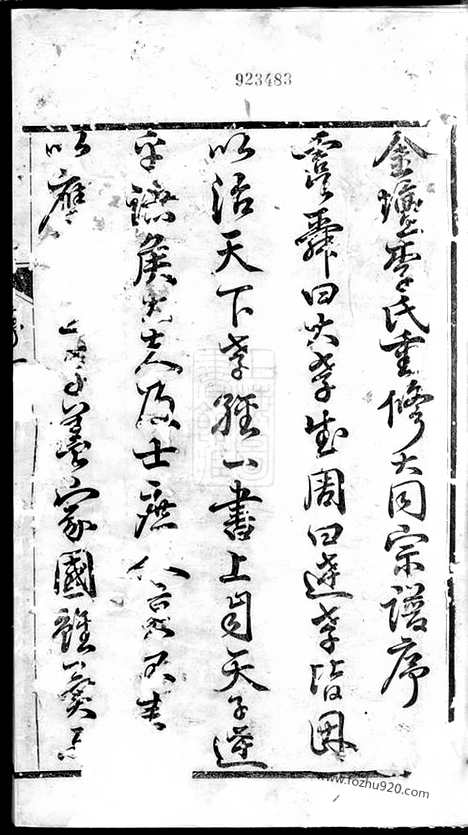 923483
金壇李氏重修大同宗譜序
虞舜曰大孝成周曰達孝皆因
以治天下孝經一書上自天子逮
乎諸侯大夫及士庶人
以應
義家國雖
www.fozhu920.com